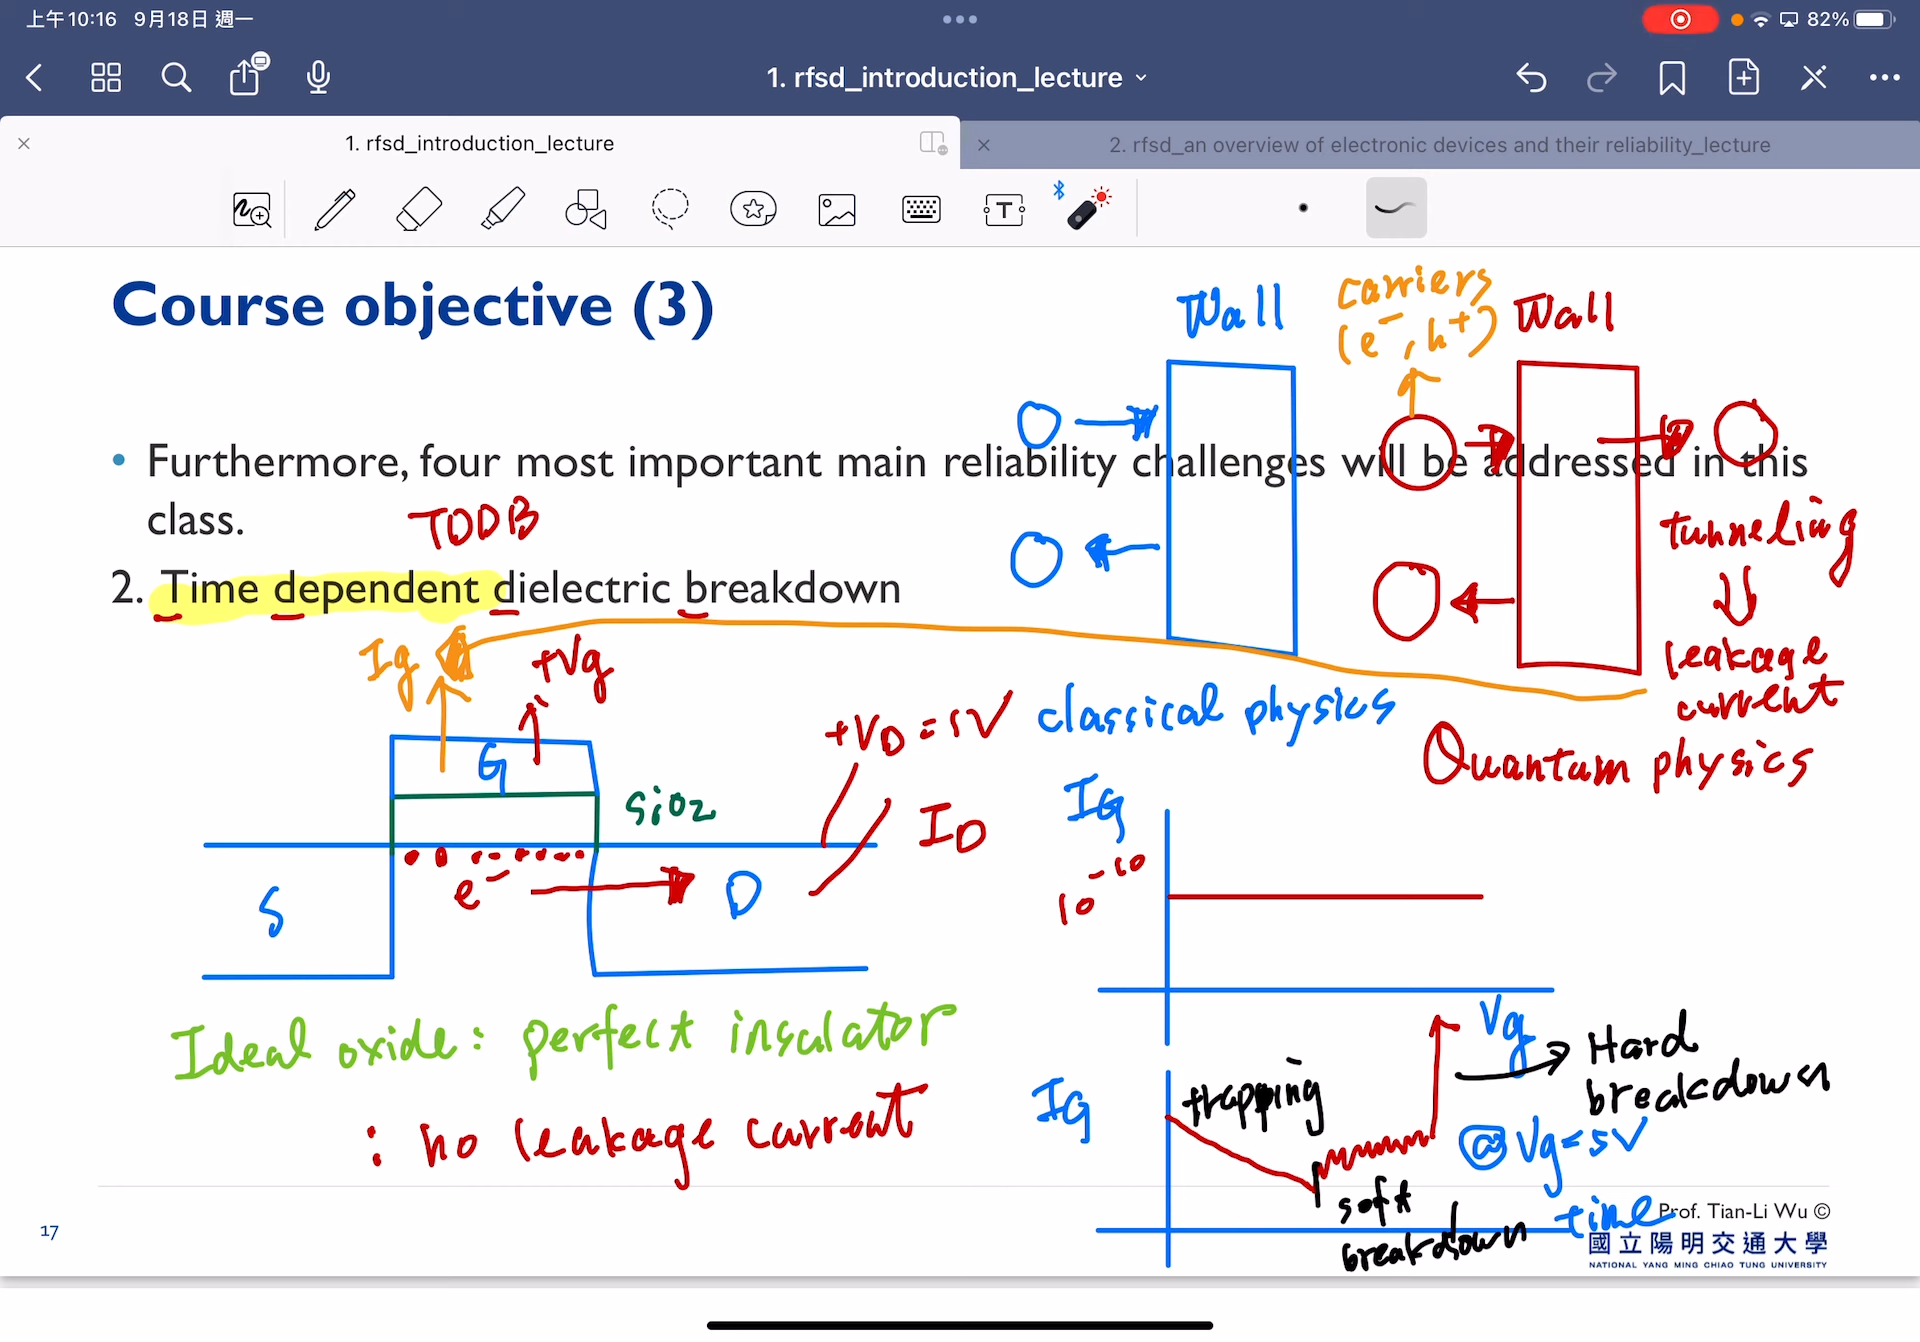 上午10:16 9月18日 週一
82%
1. rfsd_introduction_lecture
1. rfsd_introduction_lecture
2. rfsd_an overview of electronic devices and their reliability_lecture
T
Course objective (3)
Wall
carriers
(e⁻, h⁺)
Wall
• Furthermore, four most important main reliability challenges will be addressed in this
class.
TDDB
tunneling
2. Time dependent dielectric breakdown
Ig
+Vg
leakage
current
+VD = 5V
classical physics
Quantum physics
G
SiO2
ID
IG
10⁻¹⁰
S
e⁻
D
Vg
Ideal oxide: perfect insulator
: no leakage current
IG
trapping
Hard
breakdown
@Vg=5V
soft
breakdown
time
17
Prof. Tian-Li Wu ©
國立陽明交通大學
NATIONAL YANG MING CHIAO TUNG UNIVERSITY